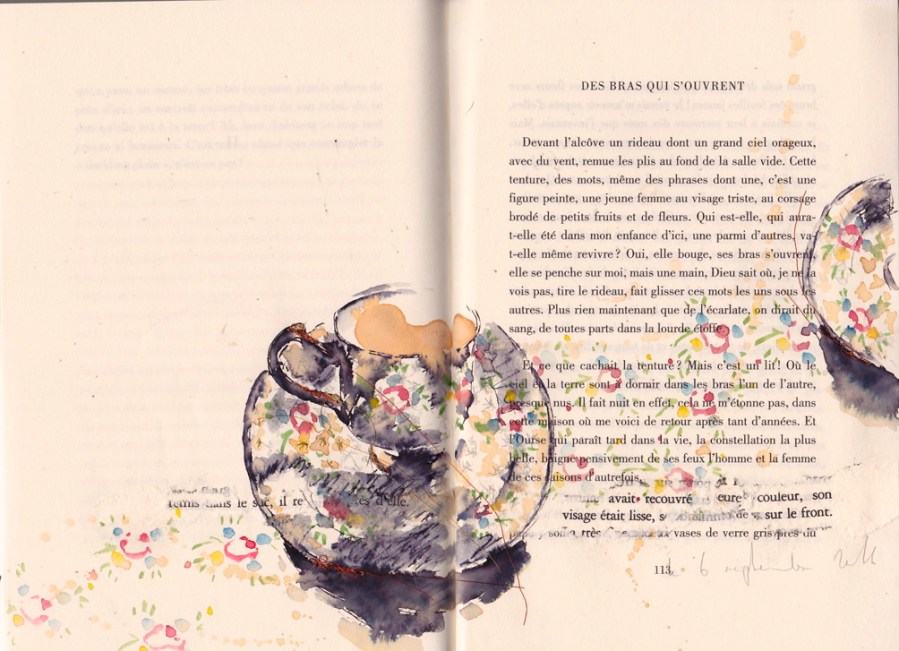 DES BRAS QUI S'OUVRENT
Devant l'alcôve un rideau dont un grand ciel orageux,
avec du vent, remue les plis au fond de la salle vide. Cette
tenture, des mots, même des phrases dont une, c'est une
figure peinte, une jeune femme au visage triste, au corsage
brodé de petits fruits et de fleurs. Qui est-elle, qui aura-
t-elle été dans mon enfance d'ici, une parmi d'autres, va-
t-elle même revivre ? Oui, elle bouge, ses bras s'ouvrent,
elle se penche sur moi, mais une main, Dieu sait où, je ne la
vois pas, tire le rideau, fait glisser ces mots les uns sous les
autres. Plus rien maintenant que de l'écarlate, on dirait du
sang, de toutes parts dans la lourde étoffe.
Et ce que cachait la tenture ? Mais c'est un lit ! Où le
ciel et la terre sont à dormir dans les bras l'un de l'autre,
presque nus. Il fait nuit en effet, cela ne m'étonne pas, dans
cette maison où me voici de retour après tant d'années. Et
l'Ourse qui paraît tard dans la vie, la constellation la plus
belle, baigne pensivement de ses feux l'homme et la femme
de ces saisons d'autrefois.
remis dans le sac, il re d'elle.
avait recouvré eure couleur, son
visage était lisse, s de sur le front.
très vases de verre gris près du
113
6 septembre